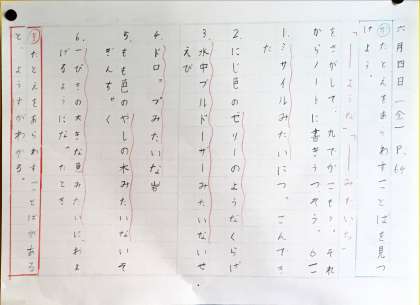 六月四日(金) P.64
め たとえをあらわすことばを見つ
けよう。
「―ような」「―みたいな」
をさがして、丸でかこもう。それ
からノートに書きうつそう。
1.ミサイルみたいにつっこんでき
た
2.にじ色のゼリーのようなくらげ
3.水中ブルドーザーみたいないせ
えび
4.ドロップみたいな岩
5.もも色のやしの木みたいないそ
ぎんちゃく
6.一ぴきの大きな魚みたいにおよ
げるようになったとき
たとえをあらわすことばがある
と、ようすがわかる。